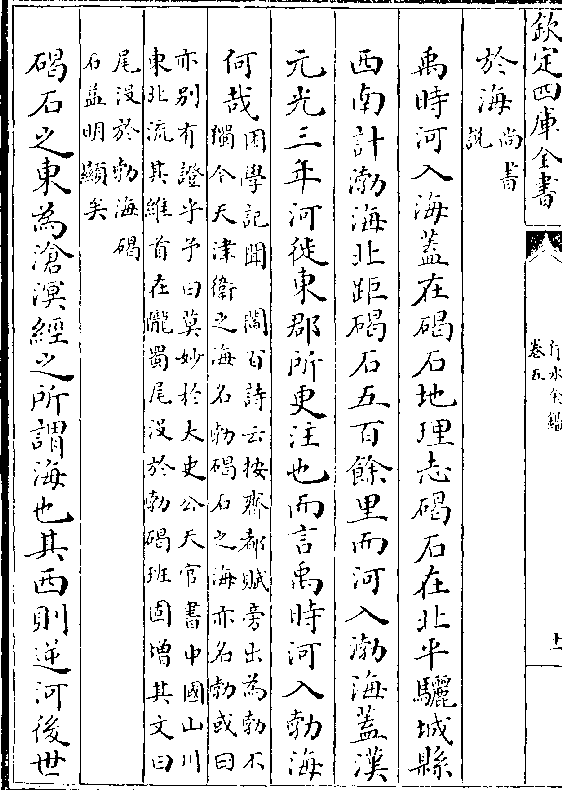 欽定四庫全書
行水金鑑
卷五
十一
於海尚書
說
禹時河入海蓋在碣石地理志碣石在北平驪城縣
西南計渤海北距碣石五百餘里而河入渤海蓋漢
元光三年河徙東郡所更注也而言禹時河入勃海
何哉困學記聞 閻百詩云按齊都賦旁出為勃不
獨今天津衛之海名勃碣石之海亦名勃或曰
亦别有證乎予曰莫妙於太史公天官書中國山川
東北流其維首在隴蜀尾没於勃碣班固增其文曰
尾没於勃海碣
石益明顯矣
碣石之東為滄溟經之所謂海也其西則逆河後世